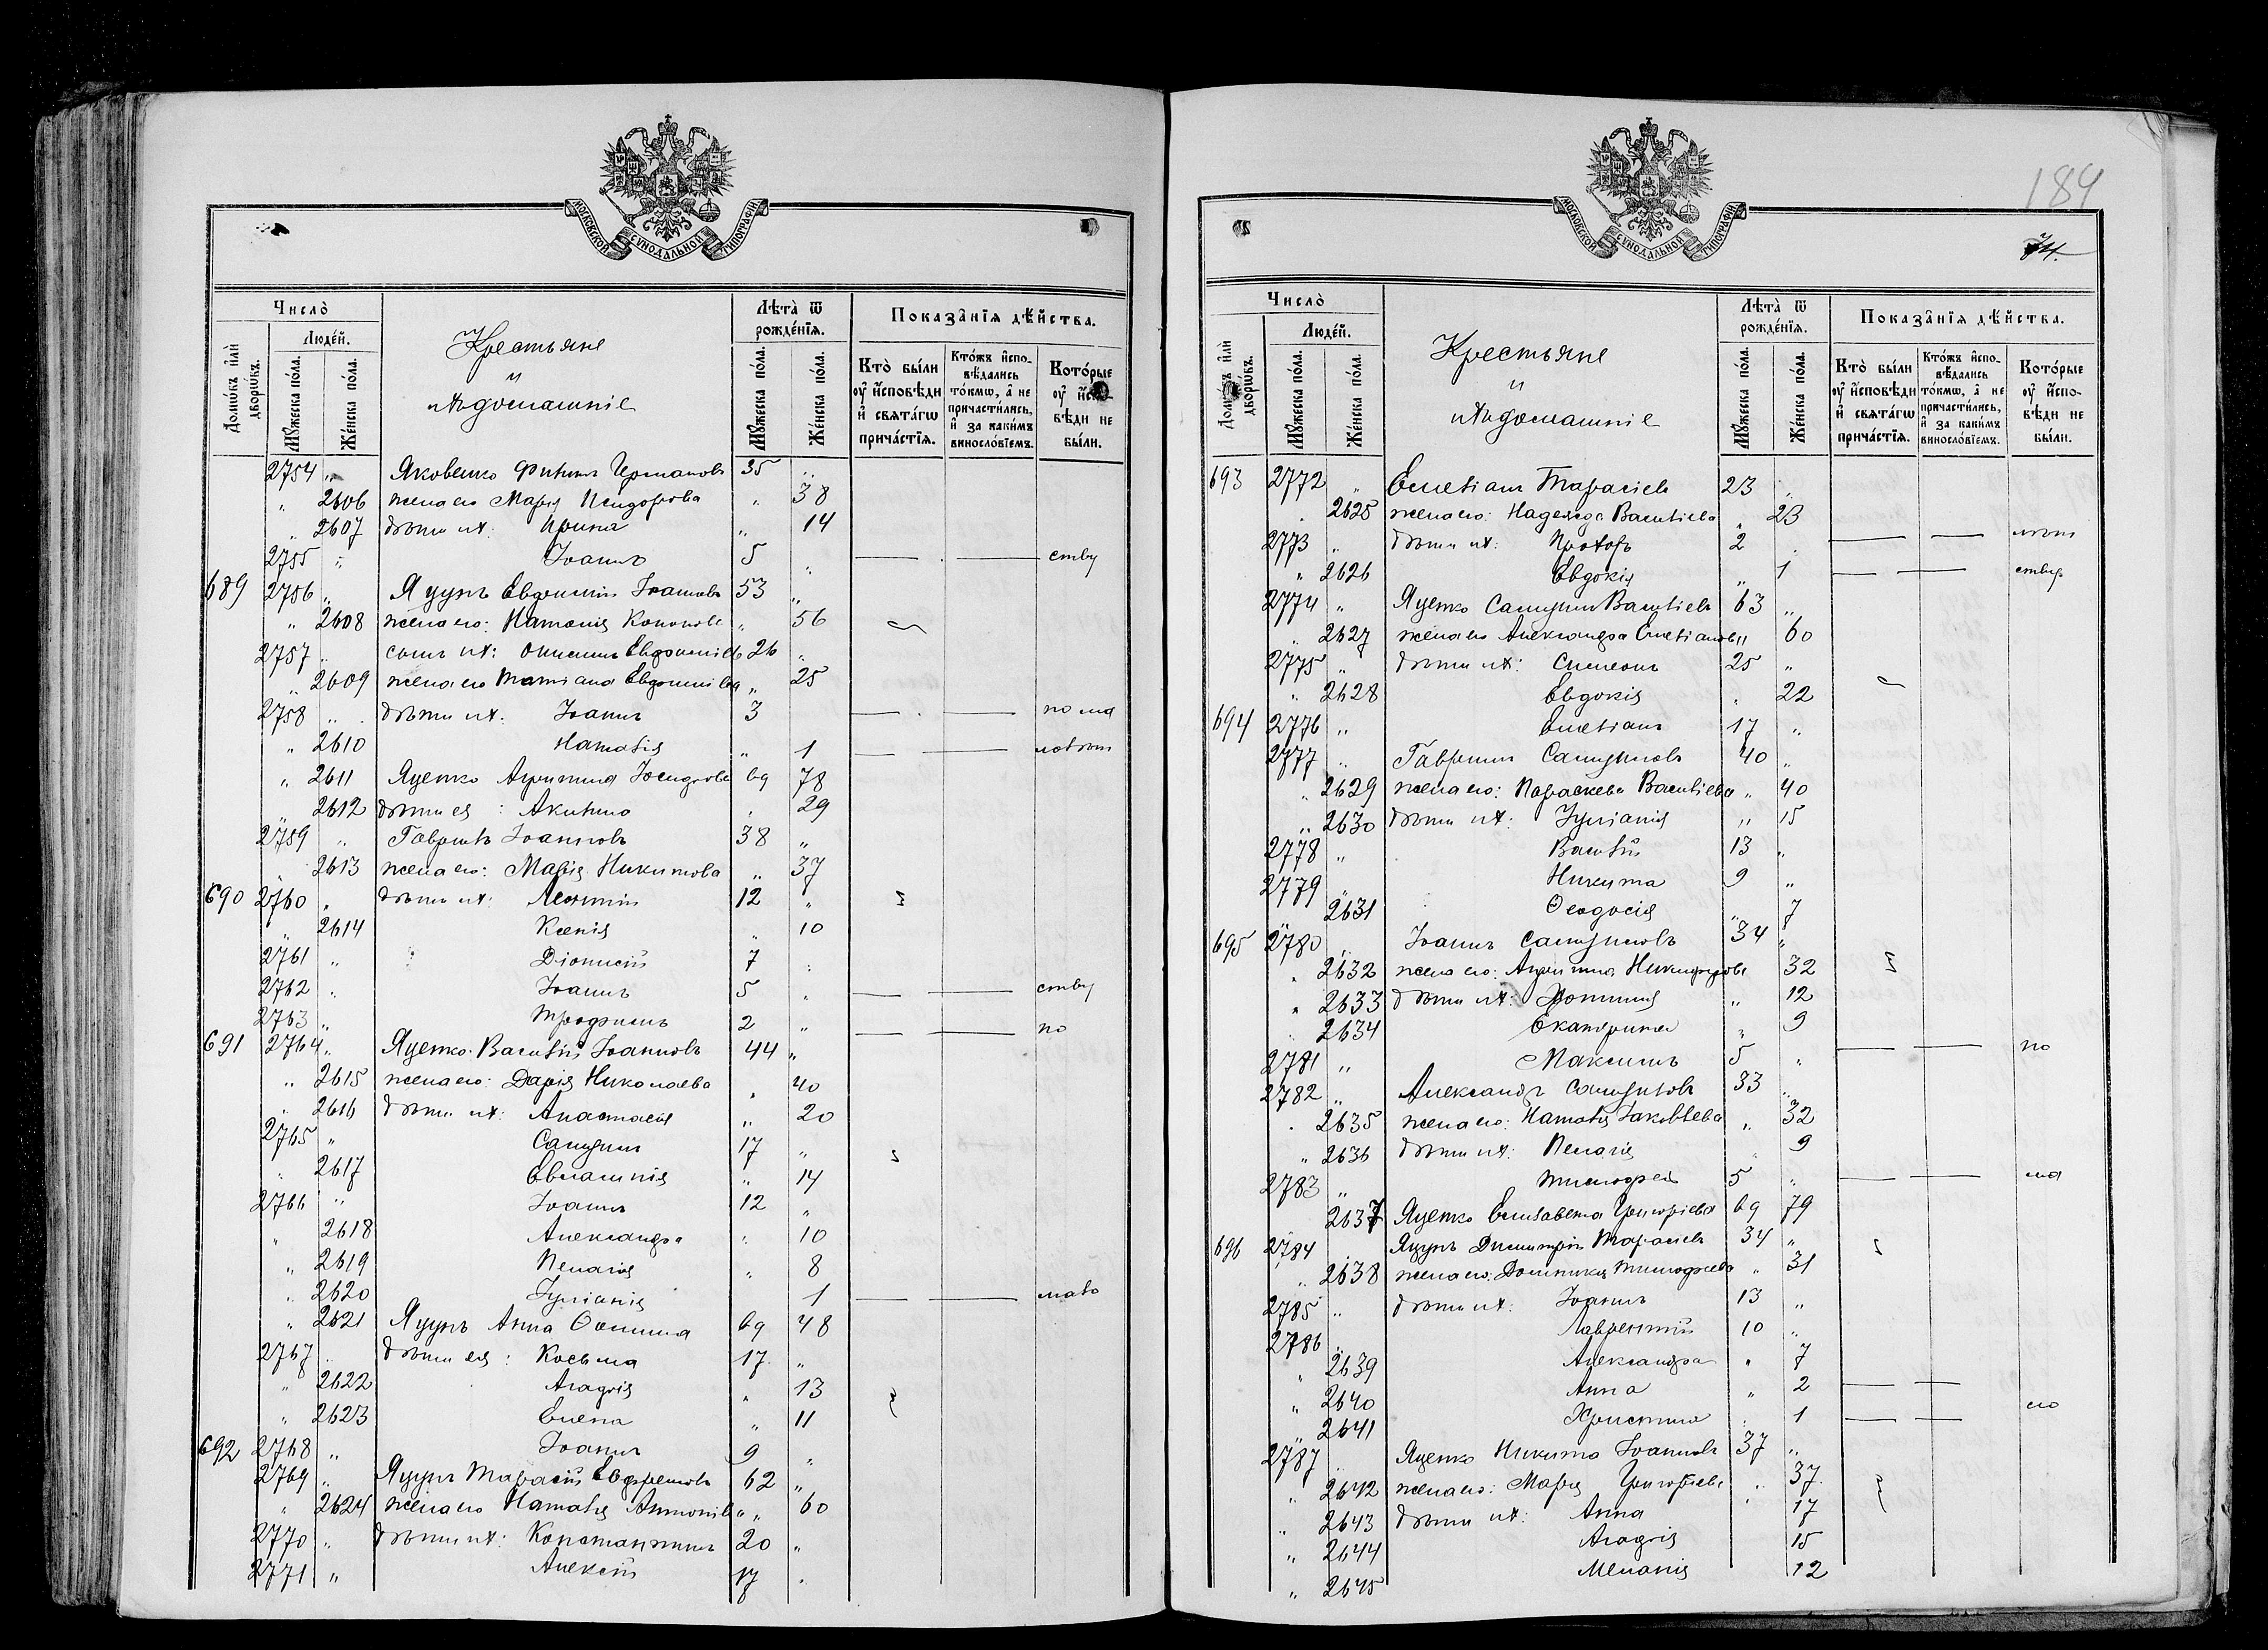 МОСКОВСКОЙ СѴНОДАЛЬНОЙ ТИПОГРАФІИ
Число̀
Домѡ́въ и҆лѝ дворѡ́въ.
Люде́й.
Мꙋ́жеска по́ла.
Же́нска по́ла.
Крестьяне
и
ихъ домашніе
Лѣта̀ ѿ рожде́нїѧ.
Мꙋ́жеска по́ла.
Же́нска по́ла.
Показа̑нїѧ дѣ́йства.
Кто̀ бы́ли ѹ҆ и҆́сповѣди и҆ свѧта́гѡ прича́стїѧ.
Кто́жъ и҆спо- вѣ́дались то́кмѡ, а҆ не причасти́лись, и҆ за каки́мъ виносло́вїемъ.
Кото́рые ѹ҆ и҆́спо- вѣди не бы́ли.
2754 „ Яковенко Филипъ Германовъ 35 „
„ 2606 жена его Марія Исидорова „ 38
„ 2607 дѣти ихъ: Ирина „ 14
2755 „ Іоаннъ 5 „ — — ству
689 2756 „ Яцунъ Евфимій Іоанновъ 53 „
„ 2608 жена его: Наталія Кононова „ 56
2757 „ сынъ ихъ: Онисимъ Евфиміевъ 26 „
„ 2609 жена его Татіана Евфиміева „ 25
2758 „ дѣти ихъ: Іоаннъ 3 — — по ма
„ 2610 Наталія „ 1 — — лолѣт
„ 2611 Яценко Агрипина Іосифова вд 78
„ 2612 дѣти ея: Акилина „ 29
2759 „ Гавріилъ Іоанновъ 38 „
„ 2613 жена его: Марія Никитова „ 37
690 2760 „ дѣти ихъ: Леонтій 12 „
„ 2614 Ксенія „ 10
2761 „ Діонисій 7 „
2762 „ Іоаннъ 5 „ — — ству
2763 „ Трофимъ 2 „ — — по
691 2764 „ Яценко Василій Іоанновъ 44 „
„ 2615 жена его: Дарія Николаева „ 40
„ 2616 дѣти ихъ: Анастасія „ 20
2765 „ Самуилъ 17 „
„ 2617 Евлампія „ 14
2766 „ Іоаннъ 12 „
„ 2618 Александра „ 10
„ 2619 Пелагія „ 8
„ 2620 Іуліанія 1 — — мало
„ 2621 Яцунъ Анна Ѳомина вд 48
2767 „ дѣти ея: Косьма 17 „
„ 2622 Агафія „ 13
„ 2623 Елена „ 11
692 2768 „ Іоаннъ 9 „
2769 „ Яцунъ Тарасій Евфремовъ 62 „
„ 2624 жена его Наталія Антоніева „ 60
2770 „ дѣти ихъ: Константинъ 20 „
2771 „ Алексій 17 „
184
74.
МОСКОВСКОЙ СѴНОДАЛЬНОЙ ТИПОГРАФІИ
Число̀
Домѡ́въ и҆лѝ дворѡ́въ.
Люде́й.
Мꙋ́жеска по́ла.
Же́нска по́ла.
Крестьяне
и
ихъ домашніе
Лѣта̀ ѿ рожде́нїѧ.
Мꙋ́жеска по́ла.
Же́нска по́ла.
Показа̑нїѧ дѣ́йства.
Кто̀ бы́ли ѹ҆ и҆́сповѣди и҆ свѧта́гѡ прича́стїѧ.
Кто́жъ и҆спо- вѣ́дались то́кмѡ, а҆ не причасти́лись, и҆ за каки́мъ виносло́вїемъ.
Кото́рые ѹ҆ и҆́спо- вѣди не бы́ли.
693 2772 „ Емеліанъ Тарасіевъ 23 „
„ 2625 жена его: Надежда Василіева „ 23
2773 „ дѣти ихъ: Прохоръ 2 „ — — лѣт
„ 2626 Евдокія „ 1 — — ству
2774 „ Яценко Самуилъ Василіевъ 63 „
„ 2627 жена его Александра Емеліанова „ 60
2775 „ дѣти ихъ: Симеонъ 25 „
„ 2628 Евдокія „ 22
694 2776 „ Емеліанъ 17 „
2777 „ Гавріилъ Самуиловъ 40 „
„ 2629 жена его: Параскева Василіева „ 40
„ 2630 дѣти ихъ: Іуліанія „ 15
2778 „ Василій 13 „
2779 „ Никита 9 „
2631 Ѳеодосія „ 7
695 2780 „ Іоаннъ Самуиловъ 34 „
„ 2632 жена его: Агрипина Никифорова 32
„ 2633 дѣти ихъ: Фотинія „ 12
2634 Екатерина „ 9
2781 „ Максимъ 5 „ — — по
2782 „ Александръ Самуиловъ 33 „
„ 2635 жена его: Наталія Іаковлева „ 32
„ 2636 дѣти ихъ: Пелагія 9
2783 „ Тимофей 5 „ — — ма
2637 Яценко Елисавета Григоріева вд 79
696 2784 Яцунъ Димитрій Тарасіевъ 34 „
„ 2638 жена его: Домникія Тимофеева „ 31
2785 „ дѣти ихъ: Іоаннъ 13 „
2786 „ Лаврентій 10 „
„ 2639 Александра „ 7
„ 2640 Анна „ 2 — —
2641 Христина „ 1 — — ло
2787 „ Яценко Никита Іоанновъ 37 „
„ 2642 жена его: Марія Григоріева „ 37
„ 2643 дѣти ихъ: Анна „ 17
„ 2644 Агафія 15
„ 2645 Меланія 12